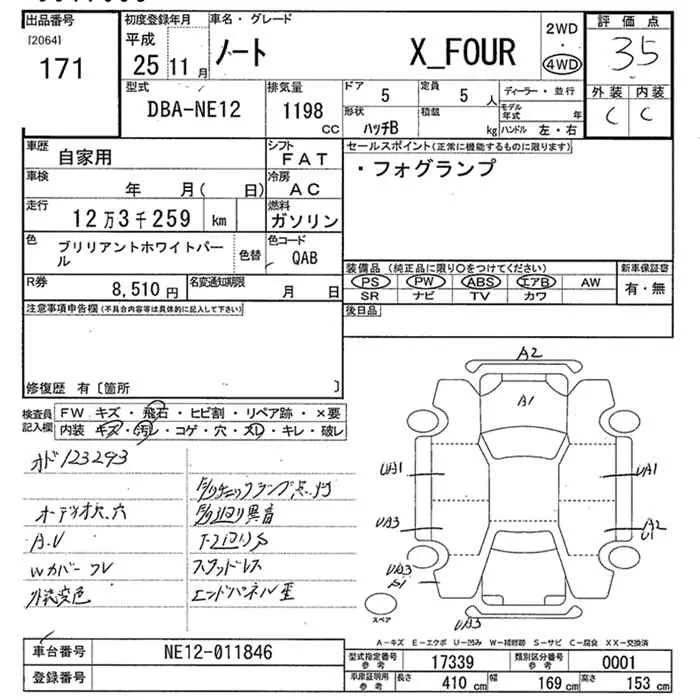 出品番号
[2064]
171
初度登録年月
平成
25 11 月
車名・グレード
ノート X_FOUR
2WD
・
4WD
評価点
3.5
外装 内装
C C
型式
DBA-NE12
排気量
1198 cc
ドア 5
定員 5 人
形状 ハッチB
積載 kg
ディーラー・並行
モデル年式 年
ハンドル 左・右
車歴 自家用
シフト FAT
車検 年 月( 日)
冷房 AC
走行 12万3千259 km
燃料 ガソリン
色 ブリリアントホワイトパール
色替
色コード QAB
R券 8,510 円
名変通知期限 月 日
セールスポイント(正常に機能するものに限ります)
・フォグランプ
装備品 (純正品に限り○をつけてください)
PS PW ABS エアB AW
SR ナビ TV カワ
新車保証書
有・無
後日品
注意事項申告欄(不具合内容等は具体的に記入して下さい)
修復歴 有〔箇所 〕
検査員記入欄
FW キズ・飛石・ヒビ割・リペア跡・×要
内装 キズ・汚レ・コゲ・穴・スレ・キレ・破レ
オド123293
オーデオ穴、穴
A.V
Wカバーフレ
外装変色
ランプ点灯
異音
スタッドレス
エンドパネル歪
A2
A1
UA1
UA1
UA3
A2
U1
UA3
A1
UA3
スペア
A-キズ E-エクボ U-凹み W-補修跡 S-サビ C-腐食 XX-交換済
車台番号 NE12-011846
登録番号
型式指定番号参考 17339
類別区分番号参考 0001
車庫証明用参考
長さ 410 cm
幅 169 cm
高さ 153 cm